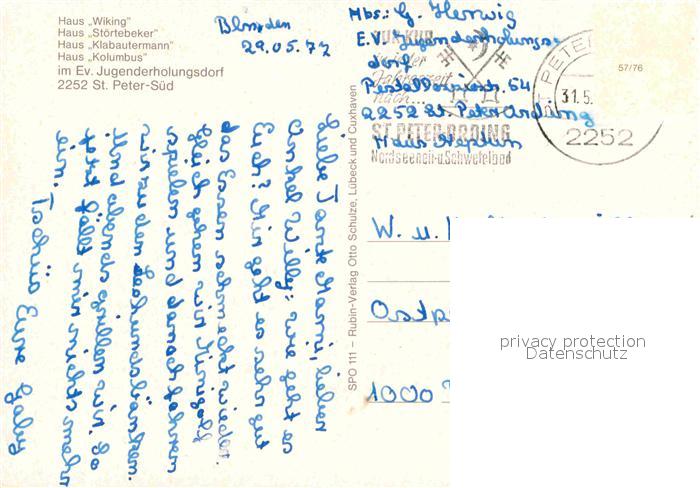 Haus „Wiking"
Haus „Störtebeker"
Haus „Klabautermann"
Haus „Kolumbus"
im Ev. Jugenderholungsdorf
2252 St. Peter-Süd
29.05.77
Liebe Tante Mami, lieber
Onkel Willy! Wie geht es
Euch? Mir geht es sehr gut
das Essen schmeckt wieder.
Gleich gehen wir Minigolf
spielen und danach fahren
wir zu den Seehundsbänken.
Und abends grillen wir. So
jetzt fällt mir nichts mehr
ein. Tschüß Eure Gaby
SPO 111 – Rubin-Verlag Otto Schulze, Lübeck und Cuxhaven
Abs.: G. Herwig
E.V. Jugenderholungs-
dorf
Pestalozzistr. 54
2252 St. Peter Ording
Haus Neptun
ZUR KUR
in jeder
Jahreszeit
nach...
ST. PETER-ORDING
Nordseeheil- u. Schwefelbad
ST. PETER
31.5.
2252
57/76
W. u.
Ostp
1000
privacy protection
Datenschutz